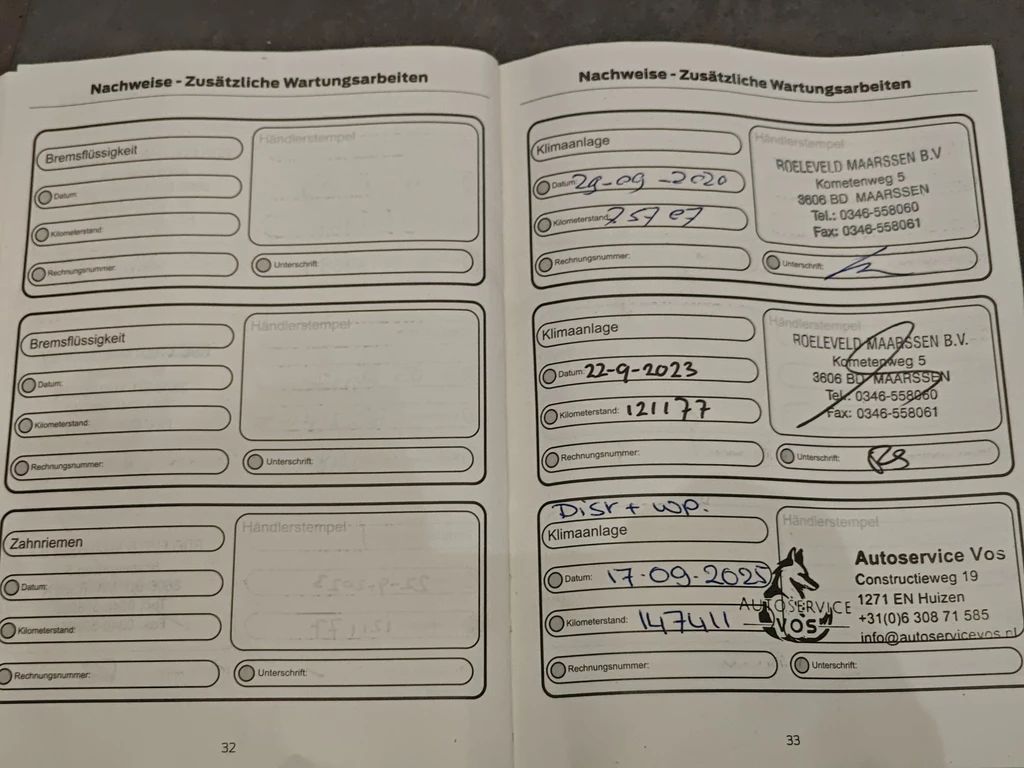 Nachweise - Zusätzliche Wartungsarbeiten
Bremsflüssigkeit
Händlerstempel
Datum:
Kilometerstand:
Rechnungsnummer:
Unterschrift:
Bremsflüssigkeit
Händlerstempel
Datum:
Kilometerstand:
Rechnungsnummer:
Unterschrift:
Zahnriemen
Händlerstempel
Datum:
Kilometerstand:
Rechnungsnummer:
Unterschrift:
32
Nachweise - Zusätzliche Wartungsarbeiten
Klimaanlage
Datum: 29-09-2020
Kilometerstand: 75707
Rechnungsnummer:
Händlerstempel
ROELEVELD MAARSSEN B.V
Kometenweg 5
3606 BD MAARSSEN
Tel.: 0346-558060
Fax: 0346-558061
Unterschrift:
Klimaanlage
Datum: 22-9-2023
Kilometerstand: 121177
Rechnungsnummer:
Händlerstempel
ROELEVELD MAARSSEN B.V.
Kometenweg 5
3606 BD MAARSSEN
Tel.: 0346-558060
Fax: 0346-558061
Unterschrift:
Distr + wp.
Klimaanlage
Datum: 17-09-2025
Kilometerstand: 147411
Rechnungsnummer:
Händlerstempel
AUTOSERVICE
VOS
Autoservice Vos
Constructieweg 19
1271 EN Huizen
+31(0)6 308 71 585
info@autoservicevos.nl
Unterschrift:
33